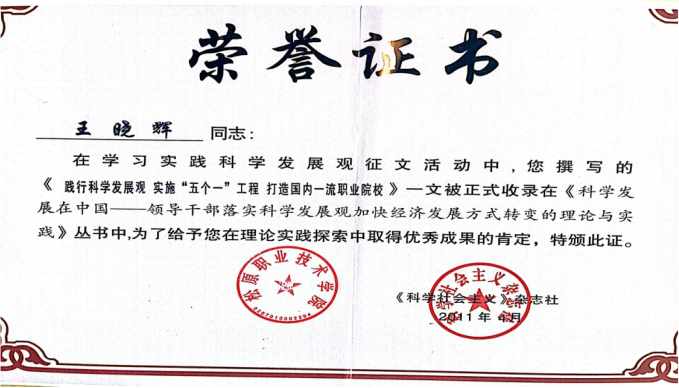 荣誉证书
王晓辉 同志：
在学习实践科学发展观征文活动中，您撰写的
《 践行科学发展观 实施“五个一”工程 打造国内一流职业院校 》一文被正式收录在《科学发
展在中国——领导干部落实科学发展观加快经济发展方式转变的理论与实
践》丛书中，为了给予您在理论实践探索中取得优秀成果的肯定，特颁此证。
松原职业技术学院
2207010002394
科学社会主义杂志社
《科学社会主义》杂志社
2011年4月